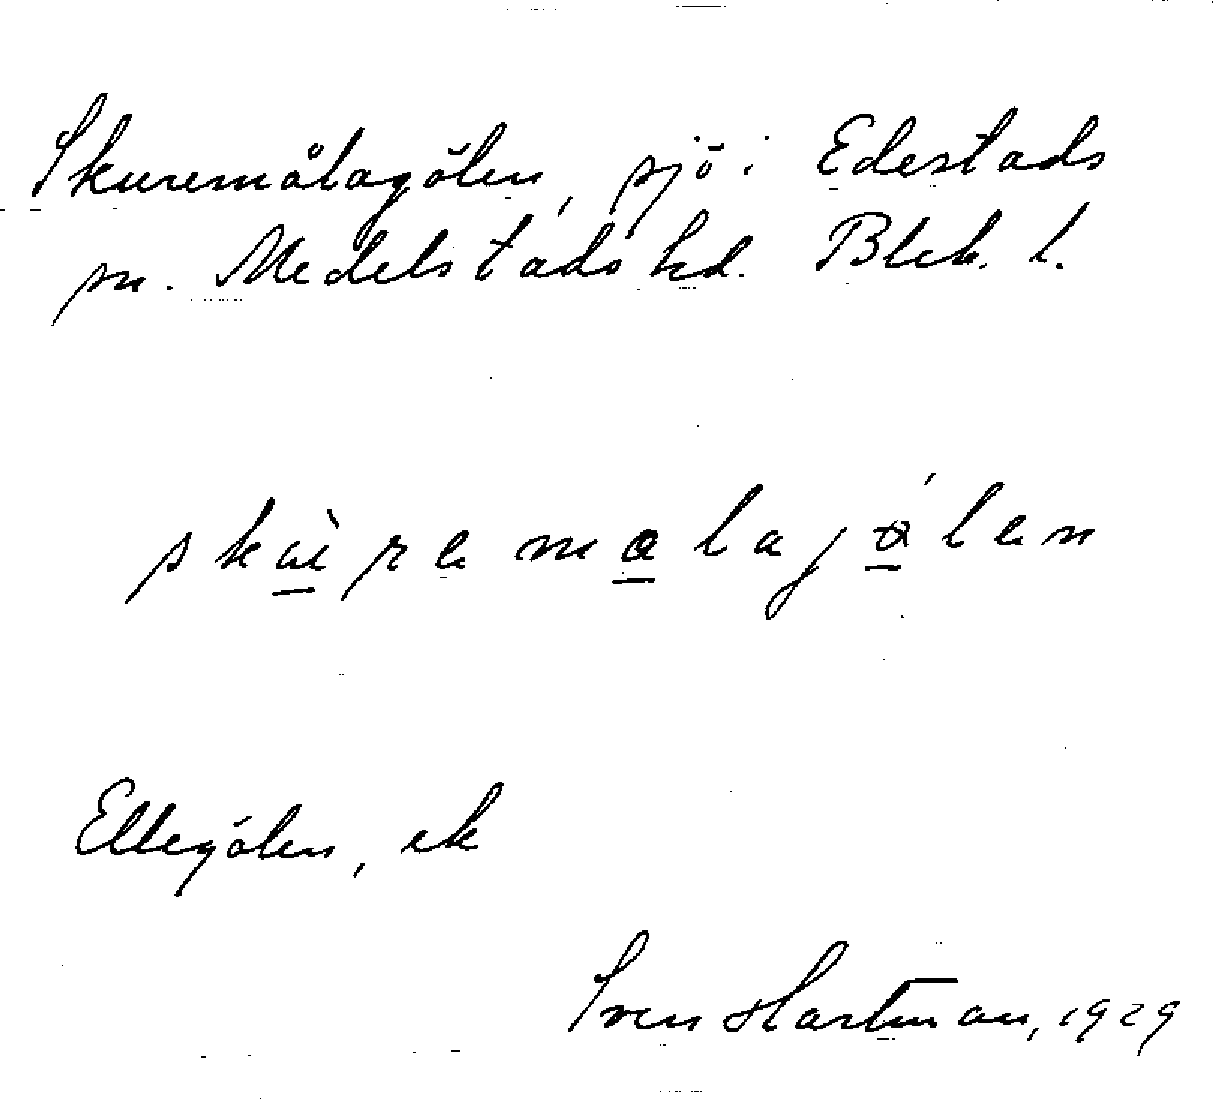 Skuremålagölen, sjö i Edestads
sn. Medelstads hd. Blek. l.
skùremålagǿlen
Ellegölen, ek
Sven Hartman, 1929